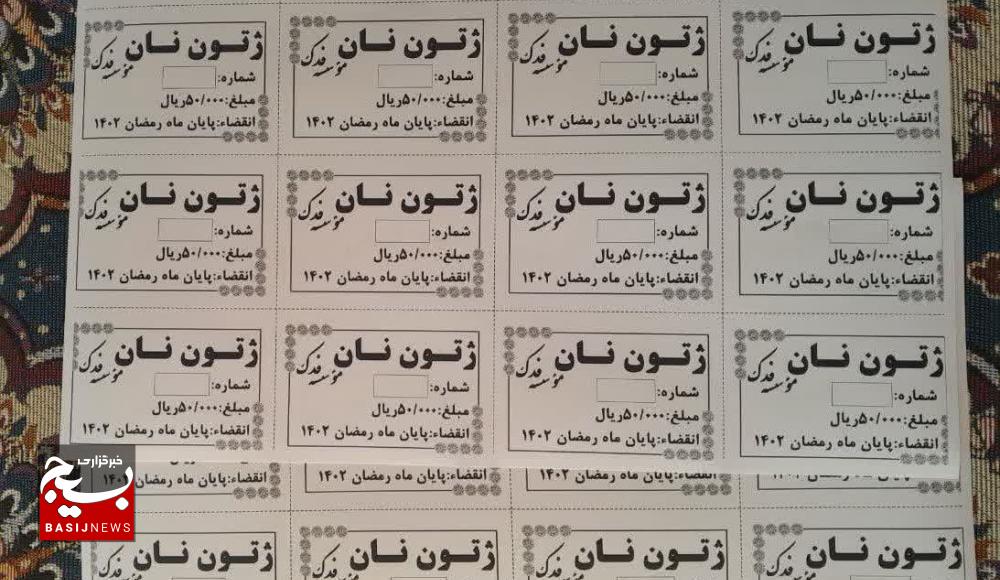 ژتون نان ژتون نان ژتون نان ژتون نان
مؤسسه فدک مؤسسه فدک مؤسسه فدک مؤسسه فدک
شماره: شماره: شماره: شماره:
مبلغ:۵۰/۰۰۰ریال مبلغ:۵۰/۰۰۰ریال مبلغ:۵۰/۰۰۰ریال مبلغ:۵۰/۰۰۰ریال
انقضاء:پایان ماه رمضان ۱۴۰۲ انقضاء:پایان ماه رمضان ۱۴۰۲ انقضاء:پایان ماه رمضان ۱۴۰۲ انقضاء:پایان ماه رمضان ۱۴۰۲
ژتون نان ژتون نان ژتون نان ژتون نان
مؤسسه فدک مؤسسه فدک مؤسسه فدک مؤسسه فدک
شماره: شماره: شماره: شماره:
مبلغ:۵۰/۰۰۰ریال مبلغ:۵۰/۰۰۰ریال مبلغ:۵۰/۰۰۰ریال مبلغ:۵۰/۰۰۰ریال
انقضاء:پایان ماه رمضان ۱۴۰۲ انقضاء:پایان ماه رمضان ۱۴۰۲ انقضاء:پایان ماه رمضان ۱۴۰۲ انقضاء:پایان ماه رمضان ۱۴۰۲
ژتون نان ژتون نان ژتون نان ژتون نان
مؤسسه فدک مؤسسه فدک مؤسسه فدک مؤسسه فدک
شماره: شماره: شماره: شماره:
مبلغ:۵۰/۰۰۰ریال مبلغ:۵۰/۰۰۰ریال مبلغ:۵۰/۰۰۰ریال مبلغ:۵۰/۰۰۰ریال
انقضاء:پایان ماه رمضان ۱۴۰۲ انقضاء:پایان ماه رمضان ۱۴۰۲ انقضاء:پایان ماه رمضان ۱۴۰۲ انقضاء:پایان ماه رمضان ۱۴۰۲
انقضاء:پایان ماه رمضان ۱۴۰۲ انقضاء:پایان ماه رمضان ۱۴۰۲ انقضاء:پایان ماه رمضان
ژتون نان ژتون نان ژتون نان ژتون نان
خبرگزاری
بسیج
BASIJNEWS